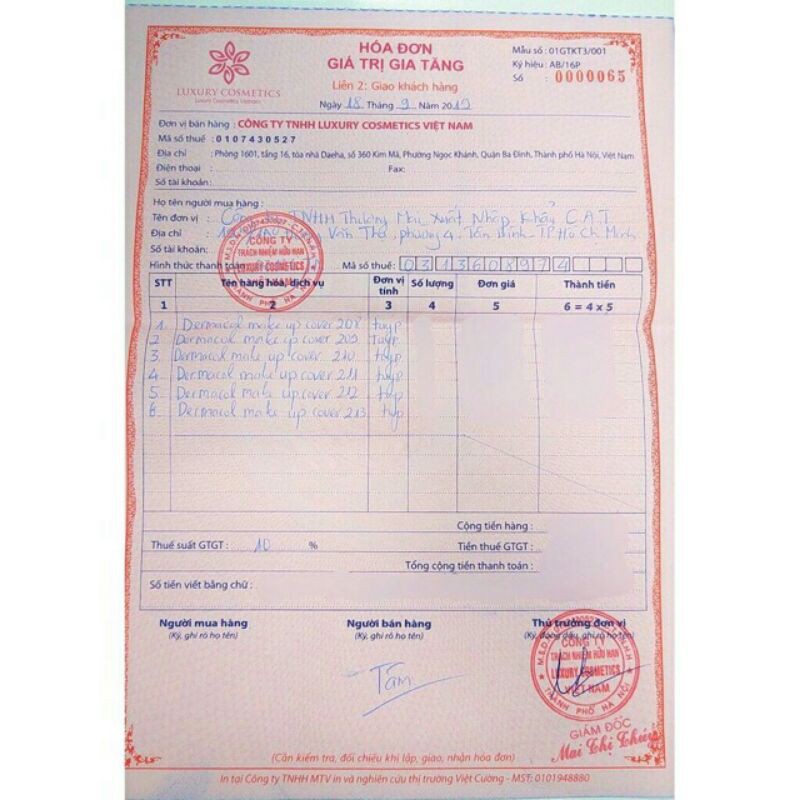 LUXURY COSMETICS
Luxury Cosmetics Vietnam
HÓA ĐƠN
GIÁ TRỊ GIA TĂNG
Liên 2: Giao khách hàng
Ngày 18 Tháng 9 Năm 2019
Mẫu số : 01GTKT3/001
Ký hiệu : AB/16P
Số : 0000065
Đơn vị bán hàng : CÔNG TY TNHH LUXURY COSMETICS VIỆT NAM
Mã số thuế : 0107430527
Địa chỉ : Phòng 1601, tầng 16, tòa nhà Daeha, số 360 Kim Mã, Phường Ngọc Khánh, Quận Ba Đình, Thành phố Hà Nội, Việt Nam
Điện thoại : Fax:
Số tài khoản:
Họ tên người mua hàng :
Tên đơn vị : Công ty TNHH Thương Mại Xuất Nhập Khẩu C.A.T
Địa chỉ : Văn Thọ, phường 4, Tân Bình TP Hồ Chí Minh
Số tài khoản:
Hình thức thanh toán Mã số thuế: 0313608974
STT Tên hàng hóa, dịch vụ Đơn vị tính Số lượng Đơn giá Thành tiền
1 2 3 4 5 6 = 4 x 5
1 Dermacol make up cover 208 tuýp
2 Dermacol make up cover 209 tuýp
3 Dermacol make up cover 210 tuýp
4 Dermacol make up cover 211 tuýp
5 Dermacol make up cover 212 tuýp
6 Dermacol make up cover 213 tuýp
Cộng tiền hàng :
Thuế suất GTGT : 10 % Tiền thuế GTGT :
Tổng cộng tiền thanh toán :
Số tiền viết bằng chữ :
Người mua hàng Người bán hàng Thủ trưởng đơn vị
(Ký, ghi rõ họ tên) (Ký, ghi rõ họ tên) (Ký, đóng dấu, ghi rõ họ tên)
Tâm
CÔNG TY
TRÁCH NHIỆM HỮU HẠN
LUXURY COSMETICS
VIỆT NAM
THÀNH PHỐ HÀ NỘI
GIÁM ĐỐC
Mai Thị Thúy
(Cần kiểm tra, đối chiếu khi lập, giao, nhận hóa đơn)
In tại Công ty TNHH MTV in và nghiên cứu thị trường Việt Cường - MST: 0101948880